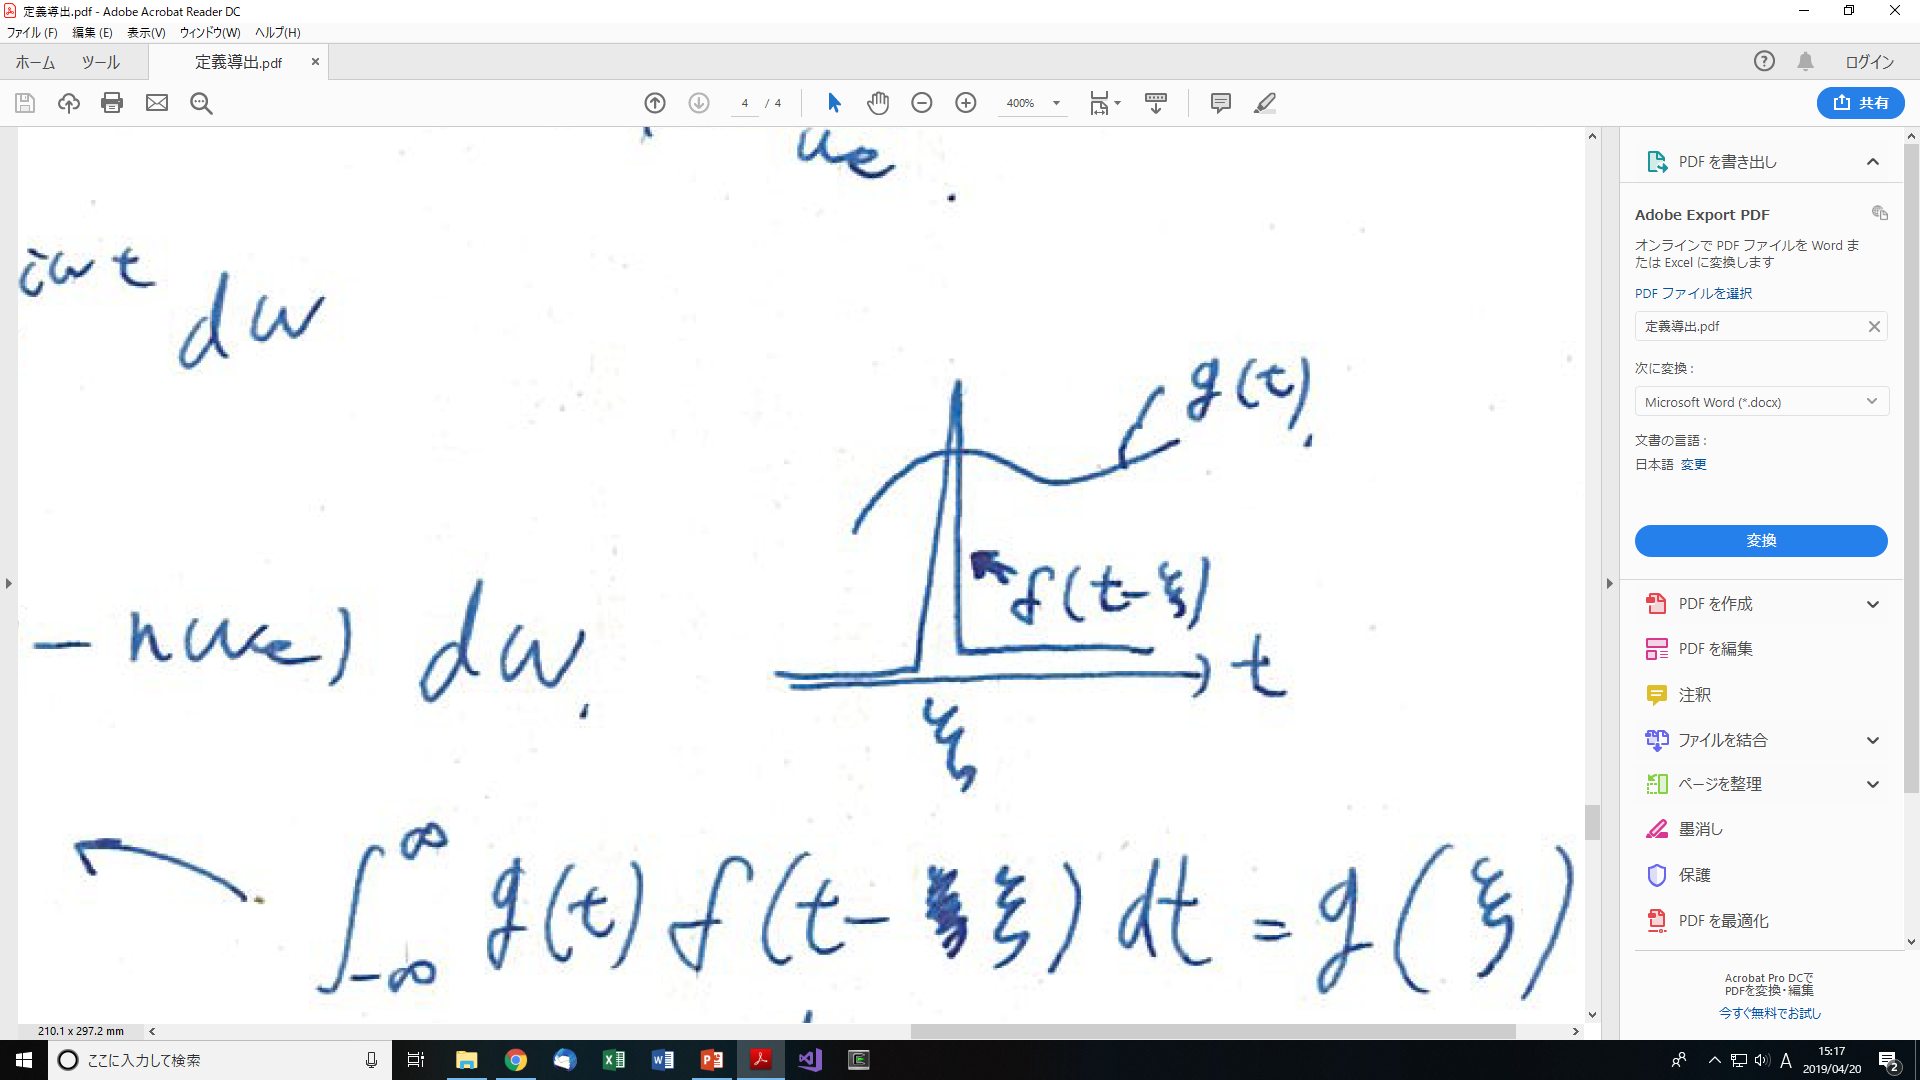 定義導出.pdf - Adobe Acrobat Reader DC
ファイル(F) 編集(E) 表示(V) ウィンドウ(W) ヘルプ(H)
ホーム ツール 定義導出.pdf × ログイン
4 / 4 400% 共有
iωt dω
g(t).
f(t-ξ)
- nωc) dω.
t
ξ
∫_{-∞}^{∞} g(t) f(t- ξ) dt = g(ξ)
210.1 x 297.2 mm
PDF を書き出し
Adobe Export PDF
オンラインで PDF ファイルを Word ま
たは Excel に変換します
PDF ファイルを選択
定義導出.pdf
次に変換 :
Microsoft Word (*.docx)
文書の言語 :
日本語 変更
変換
PDF を作成
PDF を編集
注釈
ファイルを結合
ページを整理
墨消し
保護
PDF を最適化
Acrobat Pro DCで
PDFを変換・編集
今すぐ無料でお試し
ここに入力して検索
A 15:17
2019/04/20
2